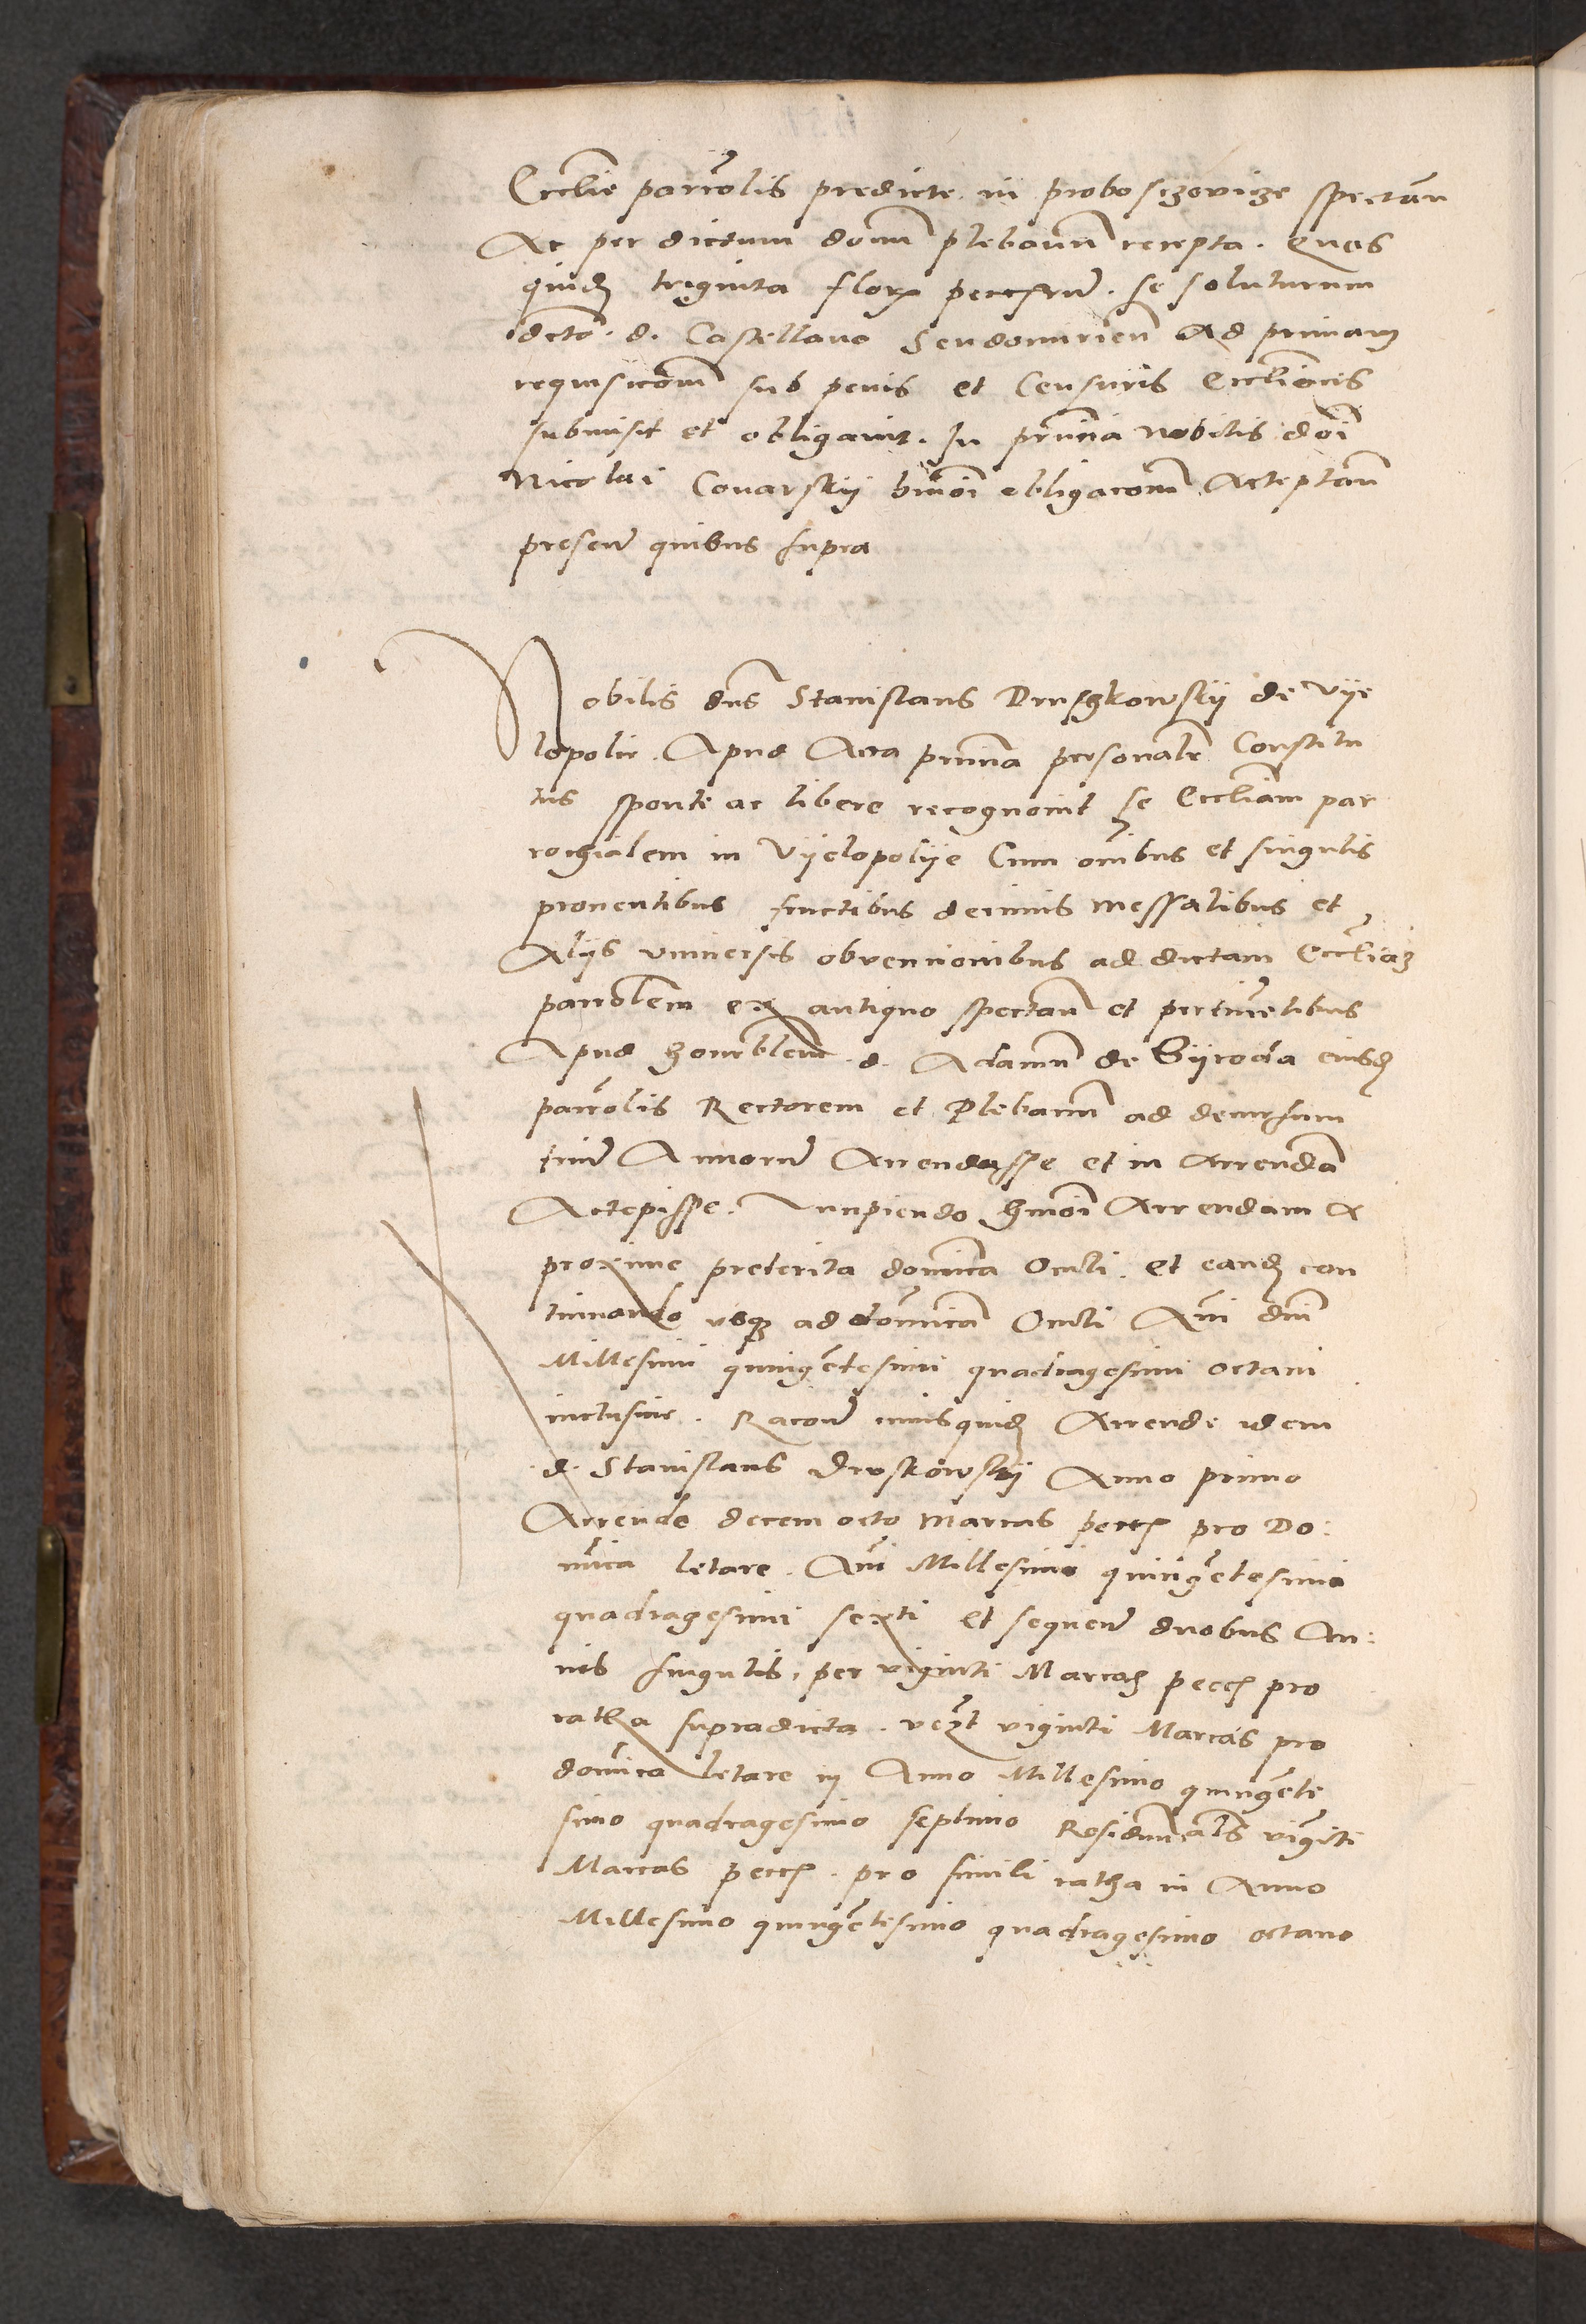 Ecclie parrolis predicte in proboszczovicze spectan
Ac per dictum donu plebanu recepta. Quas
quidẽ triginta flor pecc se soluturum
dcto d. Castellano Sendomirien Ad primam
requisicom sub penis et Censuris Ecclicis
submisit et obligavit. In pñtia Nobilis doi
Nicolai Covarskij hmoi obligacom Acceptan
presen quibus supra
Nobilis dns Stanislaus Druszkowskij de Vije
lopolie. Apud Acta pñtia personalr Constitu
tus sponte ac libere recognovit se Eccliam par
rochialem in Vijelopolije Cum oibus et singulis
proventibus fructibus decimis messalibus et
Alijs universis obvencionibus ad dictam Eccliaz
parrolem ex antiquo spectan et pertinetibus
Apud honrblem d. Adamu de Bijrocta eiusd
parrolis Rectorem et Plebanu ad decursum
trium Annorum Arrendasse et in Arrenda
Accepisse. Incipiendo hmoi Arrendam a
proxime preterita domica Oculi. et eand con
tinuando usq ad domicam Oculi Ani dni
Millesimi quingetesimi quadragesimi octavi
inclusive. Racone cuiusquid Arrende idem
d. Stanislaus Druskowskij Anno primo
Arrende decem octo Marcas pecc pro Do:
mica letare. Ani Millesimi quingetesimi
quadragesimi sexti et sequen duobus An:
nis singulis, per viginti Marcas pecc pro
ratha supradicta. vczt viginti Marcas pro
domica letare in Anno Millesimo quingete
simo quadragesimo septimo Residuas als viginti
Marcas pecc. pro simili ratha in Anno
Millesimo quingetesimo quadragesimo octavo